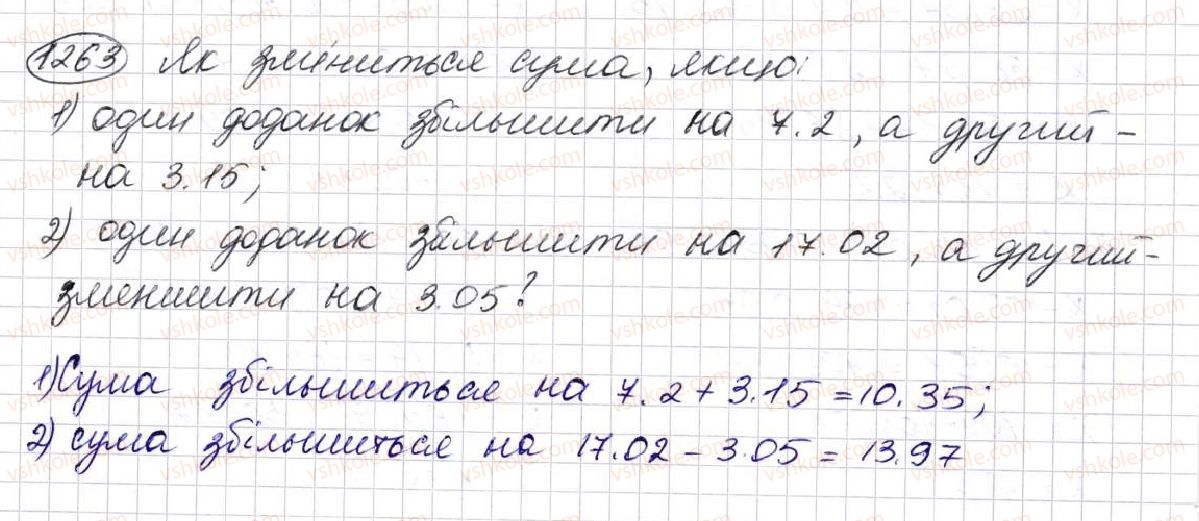 1263 Як зміниться сума, якщо:
1) один доданок збільшити на 7.2, а другий -
на 3.15;
2) один доданок збільшити на 17.02, а другий -
зменшити на 3.05?
1) Сума збільшиться на 7.2 + 3.15 = 10.35;
2) сума збільшиться на 17.02 - 3.05 = 13.97